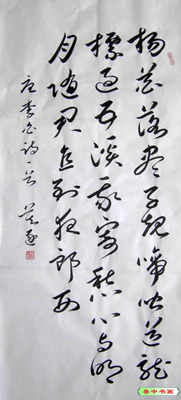 杨花落尽子规啼闻道龙
標过五溪我寄愁心与明
月随君直到夜郎西
唐李白诗一首